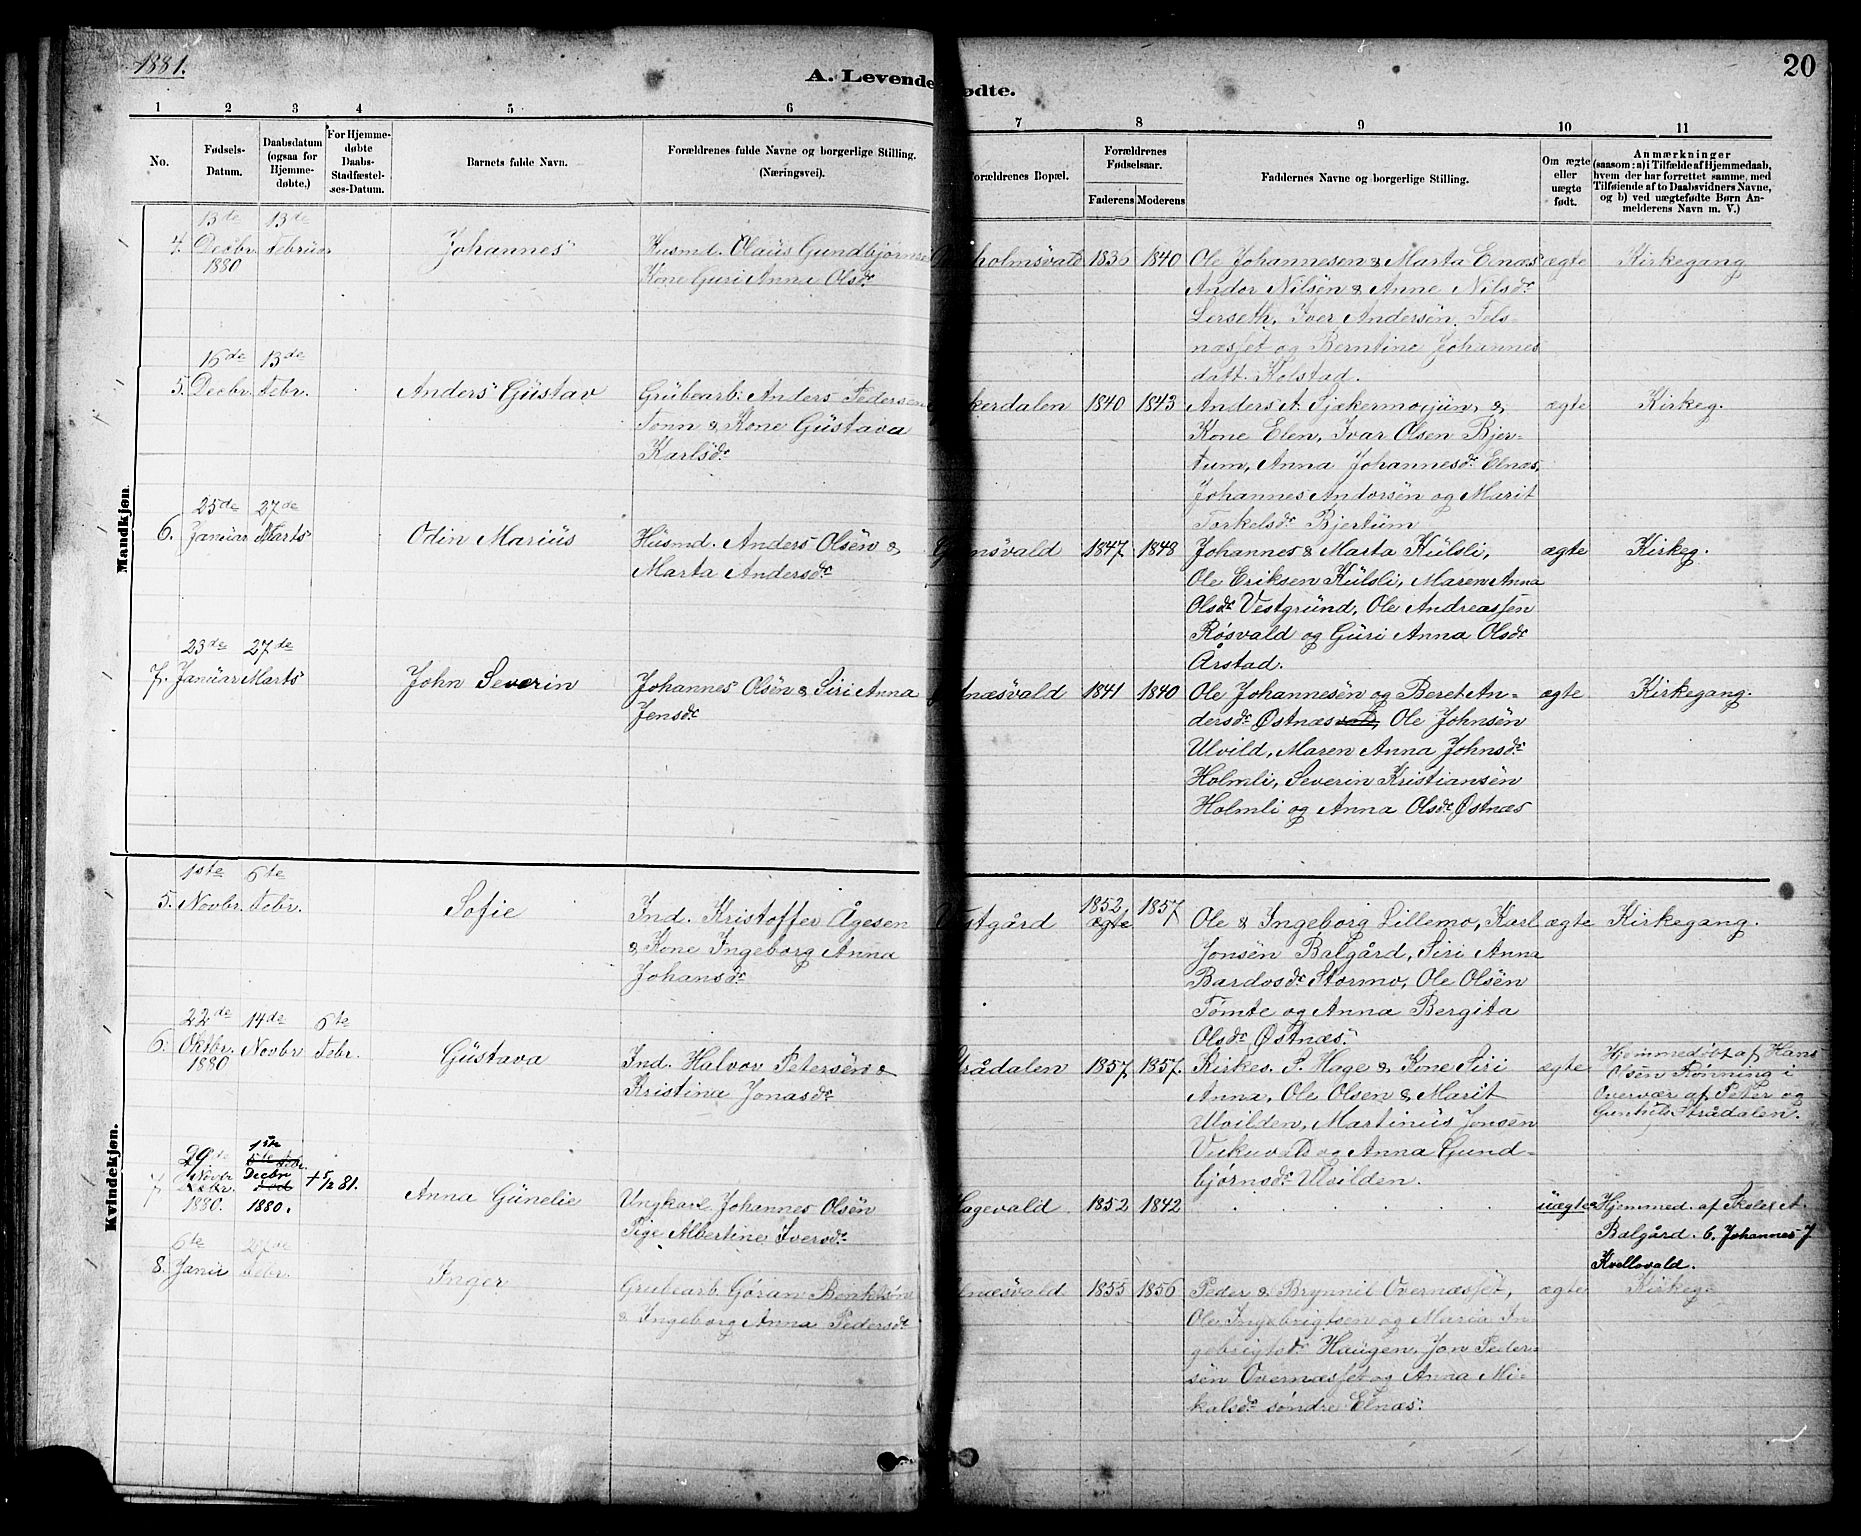 1881.
A. Levende
ødte.
20
1 2 3 4 5 6 7 8 9 10 11
No.
Fødsels-
Datum.
Daabsdatum
(ogsaa for
Hjemme-
døbte.)
For Hjemme-
døbte
Daabs-
Stadfæstel-
ses-Datum.
Barnets fulde Navn.
Forældrenes fulde Navne og borgerlige Stilling.
(Næringsvei).
Forældrenes Bopæl.
Forældrenes
Fødselsaar.
Faderens Moderens
Faddernes Navne og borgerlige Stilling.
Om ægte
eller
uægte
født.
Anmærkninger
(saasom: a) i Tilfælde af Hjemmedaab,
hvem der har forrettet samme, med
Tilføiende af to Daabsvidners Navne,
og b) ved uægtefødte Børn An-
melderens Navn m. V.)
Mandkjøn.
13de 13de
4. Decbr. Februar
1880
Johannes
Husmd. Olaus Gundbjørns
Kone Guri Anna Olsdr
holmsvald 1836 1840
Ole Johannesen & Marta Elnæs
Andor Nilsen & Anne Nilsdr
Lerseth, Iver Andersen
næsset og Berntine Johannes
datt. Holstad.
ægte
Kirkegang
16de 13de
5. Decbr. Febr.
Anders Gustav
Grubearb. Anders Pedersen
Tonn & Kone Gustava
Karlsdr
kerdalen 1840 1843
Anders A. Sjækermoejun, &
Kone Elen, Ivar Olsen Bjer-
tum, Anna Johannesdr Elnæs,
Johannes Andorsen og Marit
Torkelsdr Bjertum
ægte
Kirkeg.
25de 27de
6. Januar Marts
Odin Marius
Husmd. Anders Olsen &
Marta Andersdr
svald 1847 1848
Johannes & Marta Külsli,
Ole Eriksen Külsli, Maren Anna
Olsdr Vestgrund, Ole Andreassen
Røsvald og Guri Anna Olsdr
Årstad.
ægte
Kirkeg.
23de 27de
7. Januar Marts
John Severin
Johannes Olsen & Siri Anna
Jensdr
næsvald 1841 1840
Ole Johannesen og Beret An-
dersdr Østnæsvald, Ole Johnsen
Ulvild, Maren Anna Johnsdr
Holmli, Severin Kristiansen
Holmli og Anna Olsdr Østnæs
ægte
Kirkegang.
Kvindekjøn.
1ste 6te
5. Novbr. Febr.
Sofie
Ind. Kristoffer Ågesen
& Kone Ingeborg Anna
Johansdr
stgård 1852, 1857
ægte
Ole & Ingeborg Lillemo, Karl
Jonsen Balgård, Siri Anna
Bardosdr Stormo, Ole Olsen
Tømte og Anna Bergita
Olsdr Østnæs.
ægte
Kirkegang.
22de 14de 6te
6. Oktbr. Novbr Febr.
1880
Gustava
Ind. Halvor Petersen &
Kristina Jonasdr
rådalen 1857 1857.
Kirkes. P. Hage & Kone Siri
Anna, Ole Olsen & Marit
Ulvilden, Martinus Jonsen
Vukuvald og Anna Gund-
bjørnsdr Ulvilden.
ægte
Hjemmedøbt af Hans
Olsen Rønning i
Overvær af Peter og
Gunhild Strådalen.
29de 1ste
7. Novbr. Decbr
1880. 1880.
+ 5/12 81.
Anna Gunelie
Ungkarl Johannes Olsen
Pige Albertine Iversdr
Hagevald 1852 1842
uægte
Hjemmed. af Skolel. A.
Balgård. 6. Johannes J
Kvellovald.
6te 27de
8. Janu Febr.
Inger
Grubearb. Gøran Benktsøn
& Ingeborg Anna Pedersdr
næsvald 1855 1856
Peder & Brynnil Overnæsset,
Ole Ingebrigtsen og Maria In
gebrigtsdr Haugen, Jon Peder-
sen Overnæsset og Anna Mi-
kalsdr søndre Elnæs.
ægte
Kirkeg.